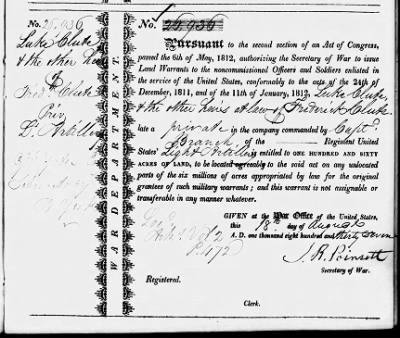 No. 25.936
Luke Clute
& the other heirs
of
Fredk Clute
Priv
L. Artillery
WAR DEPARTMENT.
No. 25.936
Pursuant to the second section of an Act of Congress,
passed the 6th of May, 1812, authorizing the Secretary of War to issue
Land Warrants to the noncommissioned Officers and Soldiers enlisted in
the service of the United States, conformably to the acts of the 24th of
December, 1811, and of the 11th of January, 1812, Luke Clute,
& the other heirs at law of Frederick Clute,
late a private in the company commanded by Capt.
Branch Regiment United
States' Light Artillery entitled to ONE HUNDRED AND SIXTY
ACRES OF LAND, to be located agreeably to the said act on any unlocated
parts of the six millions of acres appropriated by law for the original
grantees of such military warrants; and this warrant is not assignable or
transferable in any manner whatever.
GIVEN at the War Office of the United States,
this 18th day of August
A. D. one thousand eight hundred and thirty seven
J. R. Poinsett
Secretary of War.
Vol 2
P. 172
Registered.
Clerk.